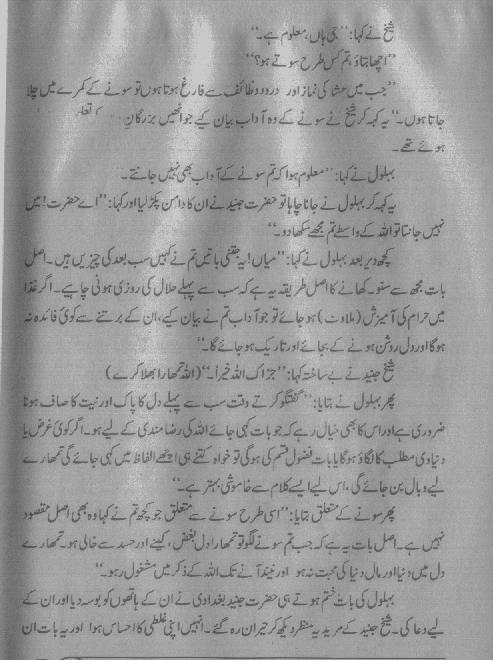 شیخ نے کہا: ”جی ہاں، معلوم ہے۔“
”اچھا بتاؤ، تم کس طرح سوتے ہو؟“
”جب میں عشا کی نماز اور درود و وظائف سے فارغ ہوتا ہوں تو سونے کے کمرے میں چلا
جاتا ہوں۔“ یہ کہہ کر شیخ نے سونے کے وہ آداب بیان کیے جو انھیں بزرگان کی تعلیم
ہوئے تھے۔
بہلول نے کہا: ”معلوم ہوا کہ تم سونے کے آداب بھی نہیں جانتے۔
یہ کہہ کر بہلول نے جانا چاہا تو حضرت جنید نے ان کا دامن پکڑ لیا اور کہا: ”اے حضرت! میں
نہیں جانتا تو اللہ کے واسطے تم مجھے سکھا دو۔“
کچھ دیر بعد بہلول نے کہا: ”میاں! یہ جتنی باتیں تم نے کہیں سب بعد کی چیزیں ہیں۔ اصل
بات مجھ سے سنو۔ کھانے کا اصل طریقہ یہ ہے کہ سب سے پہلے حلال کی روزی ہونی چاہیے۔ اگر غذا
میں حرام کی آمیزش (ملاوٹ) ہو جائے تو جو آداب تم نے بیان کیے، ان کے برتنے سے کوئی فائدہ نہ
ہوگا اور دل روشن ہونے کے بجائے اور تاریک ہو جائے گا۔“
شیخ جنید نے بے ساختہ کہا: ”جزاک اللہ خیراً۔“ (اللہ تمھارا بھلا کرے)
پھر بہلول نے بتایا: ”گفتگو کرتے وقت سب سے پہلے دل کا پاک اور نیت کا صاف ہونا
ضروری ہے اور اس کا بھی خیال رہے کہ جو بات کہی جائے اللہ کی رضامندی کے لیے ہو۔ اگر کوئی غرض یا
دنیاوی مطلب کا لگاؤ ہوگا یا بات فضول قسم کی ہوگی تو خواہ کتنے ہی اچھے الفاظ میں کہی جائے گی تمھارے
لیے وبال بن جائے گی، اس لیے ایسے کلام سے خاموشی بہتر ہے۔“
پھر سونے کے متعلق بتایا: ”اسی طرح سونے سے متعلق جو کچھ تم نے کہا وہ بھی اصل مقصود
نہیں ہے۔ اصل بات یہ ہے کہ جب تم سونے لگو تو تمھارا دل بغض، کینے اور حسد سے خالی ہو۔ تمھارے
دل میں دنیا اور مالِ دنیا کی محبت نہ ہو اور نیند آنے تک اللہ کے ذکر میں مشغول رہو۔“
بہلول کی بات ختم ہوتے ہی حضرت جنید بغدادی نے ان کے ہاتھوں کو بوسہ دیا اور ان کے
لیے دعا کی۔ شیخ جنید کے مرید یہ منظر دیکھ کر حیران رہ گئے۔ انہیں اپنی غلطی کا احساس ہوا اور یہ بات ان